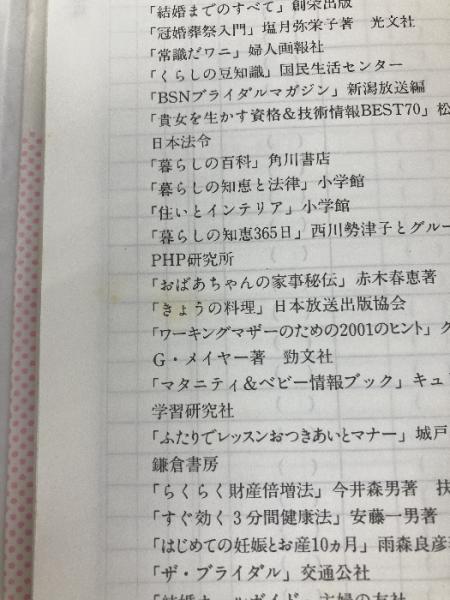 「結婚までのすべて」創栄出版
「冠婚葬祭入門」塩月弥栄子著　光文社
「常識だワニ」婦人画報社
「くらしの豆知識」国民生活センター
「BSNブライダルマガジン」新潟放送編
「貴女を生かす資格＆技術情報BEST70」松
日本法令
「暮らしの百科」角川書店
「暮らしの知恵と法律」小学館
「住いとインテリア」小学館
「暮らしの知恵365日」西川勢津子とグルー
PHP研究所
「おばあちゃんの家事秘伝」赤木春恵著
「きょうの料理」日本放送出版協会
「ワーキングマザーのための2001のヒント」グ
G・メイヤー著　勁文社
「マタニティ＆ベビー情報ブック」キュ
学習研究社
「ふたりでレッスンおつきあいとマナー」城戸
鎌倉書房
「らくらく財産倍増法」今井森男著　扶
「すぐ効く３分間健康法」安藤一男著
「はじめての妊娠とお産10ヵ月」雨森良彦
「ザ・ブライダル」交通公社